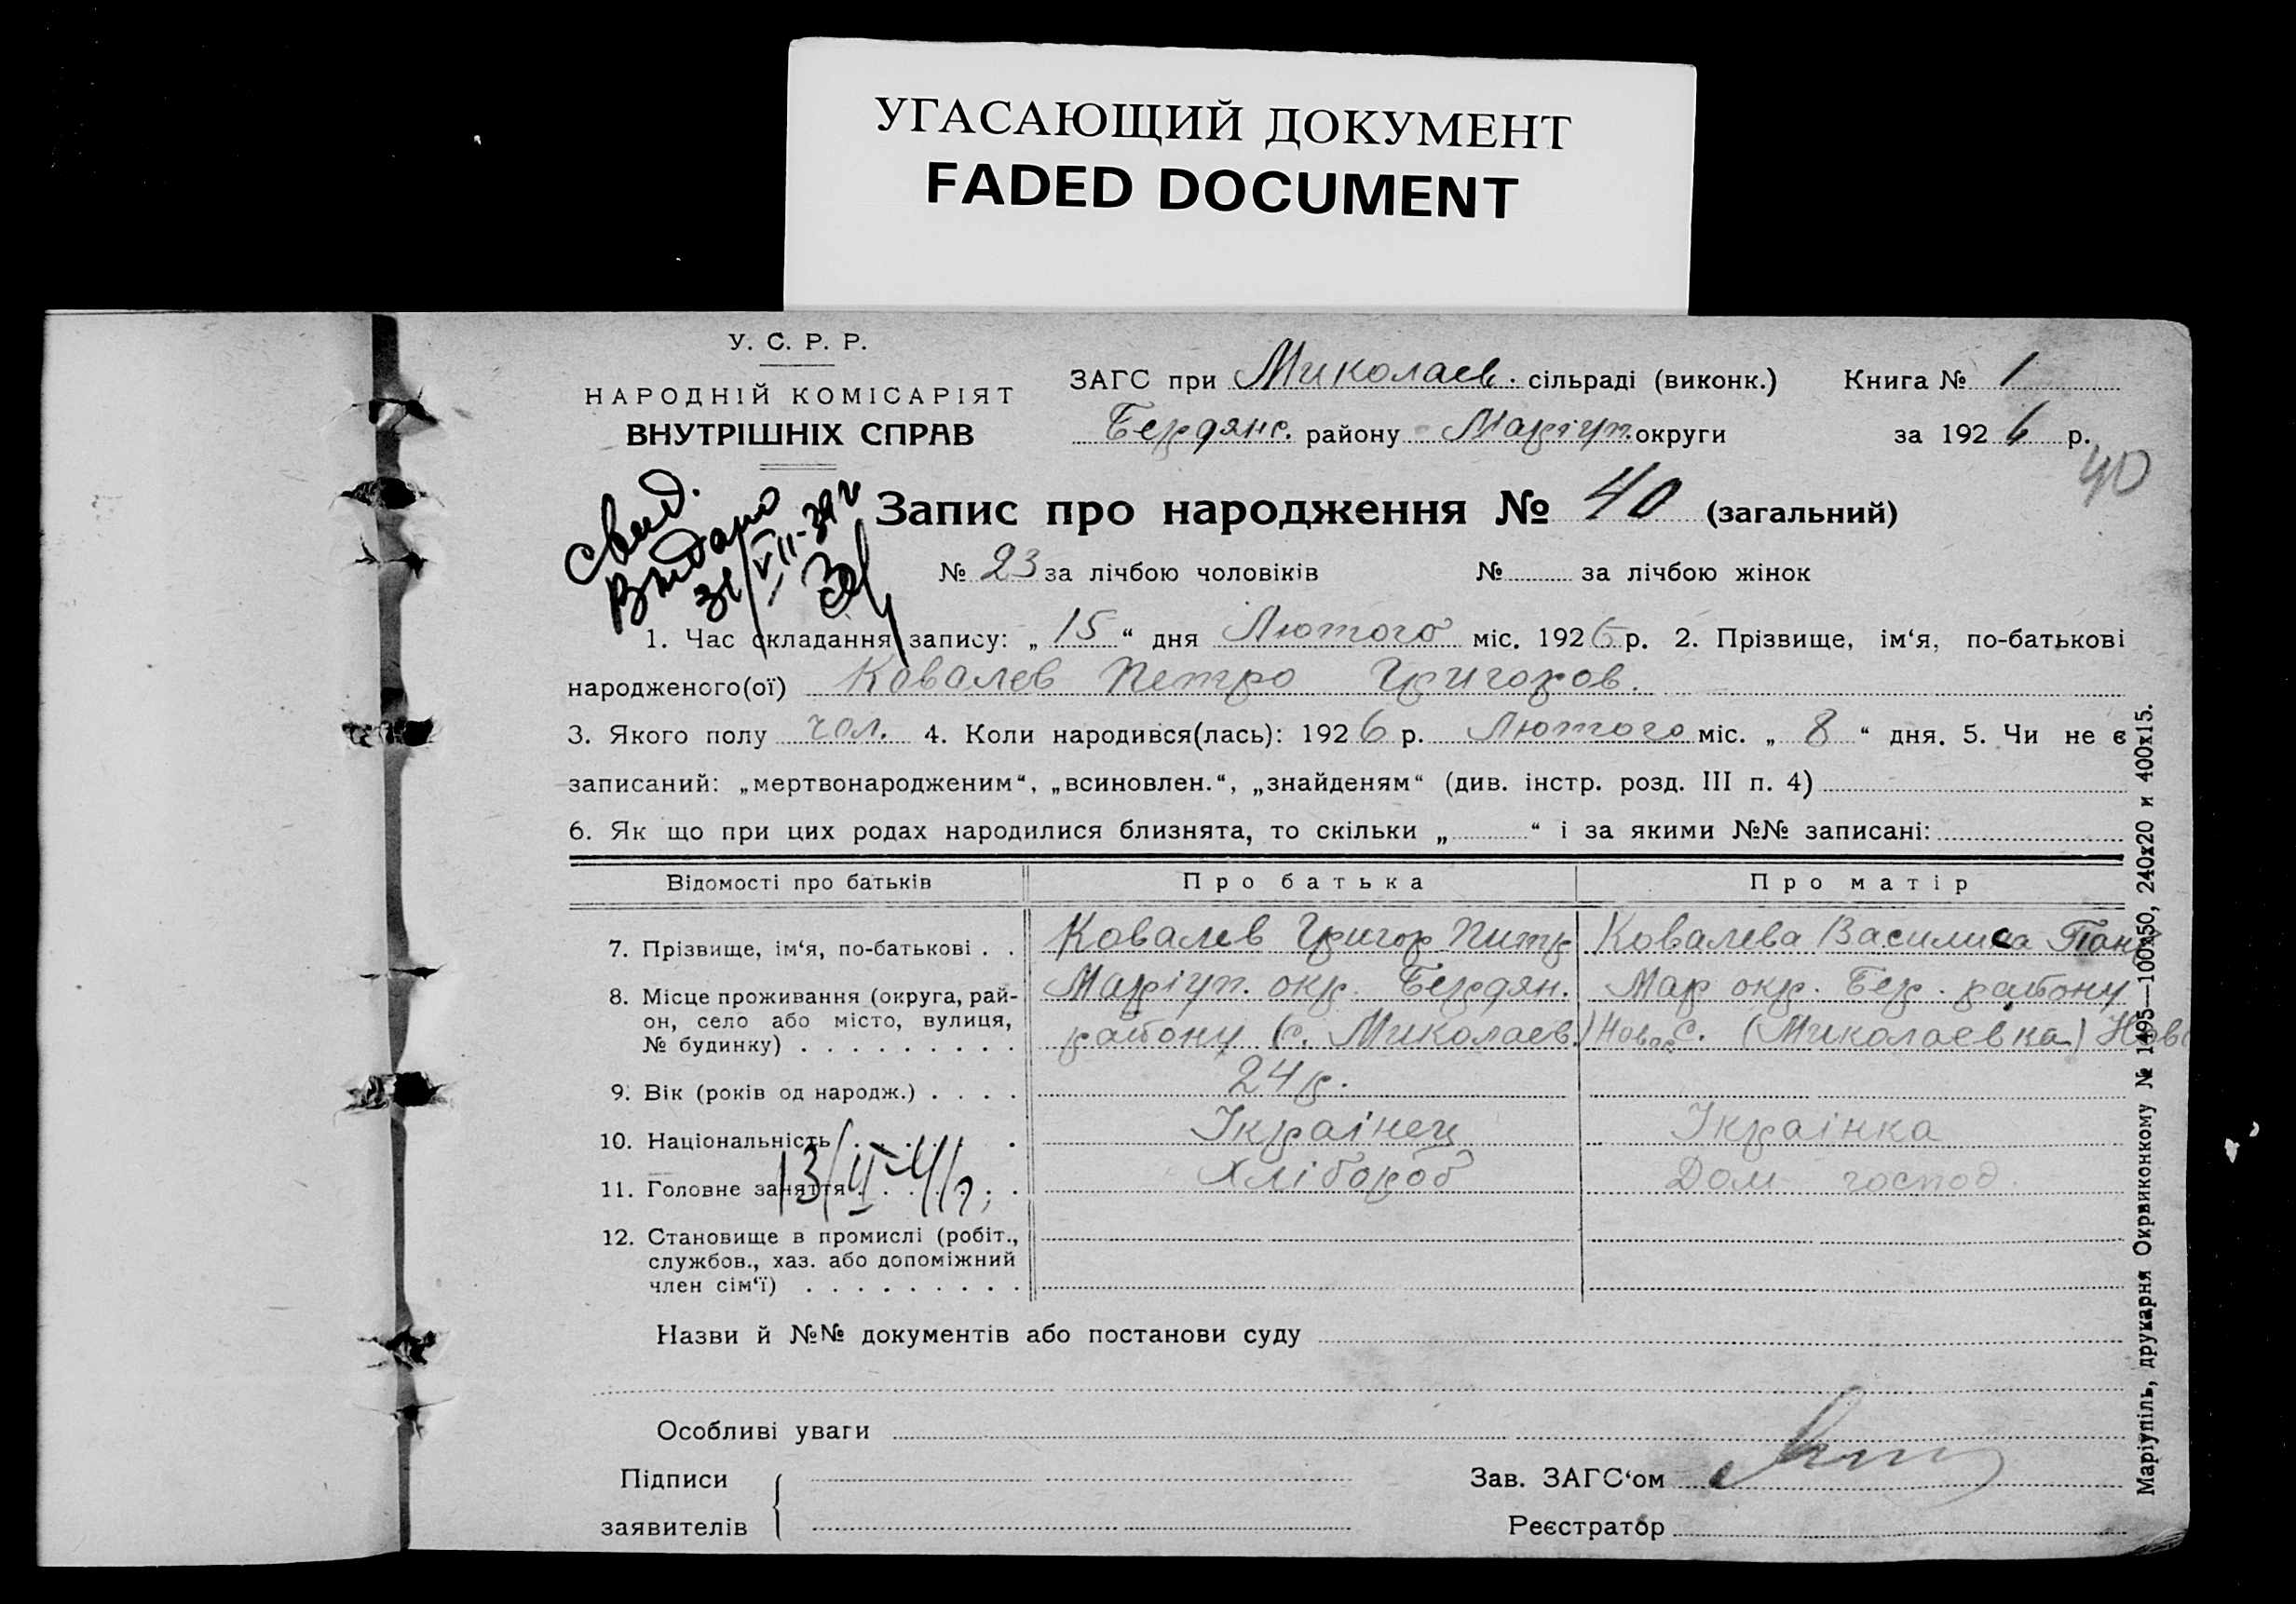 УГАСАЮЩИЙ ДОКУМЕНТ
FADED DOCUMENT
У. С. Р. Р.
НАРОДНІЙ КОМІСАРІЯТ
ВНУТРІШНІХ СПРАВ
ЗАГС при Миколаев. сільраді (виконк.) Книга № 1
Бердянс. району Маріуп. округи за 1926 р.
40
Свид.
выдано
31/VII-39 г
Запис про народження № 40 (загальний)
№ 23 за лічбою чоловіків № за лічбою жінок
1. Час складання запису: „ 15 “ дня Лютого міс. 1926 р. 2. Прізвище, ім‘я, по-батькові
народженого(ої) Ковалев Петро Григоров.
3. Якого полу чол. 4. Коли народився(лась): 1926 р. Лютого міс. „ 8 “ дня. 5. Чи не є
записаний: „мертвонародженим“, „всиновлен.“, „знайденям“ (див. інстр. розд. III п. 4)
6. Як що при цих родах народилися близнята, то скільки „ “ і за якими №№ записані:
Відомості про батьків Про батька Про матір
7. Прізвище, ім‘я, по-батькові . . Ковалев Григор Питр Ковалева Василиса
8. Місце проживання (округа, рай- Маріуп. окр. Бердян. Мар окр. Бер. району
он, село або місто, вулиця, району (с. Миколаев.) Ново с. (Миколаевка) Ново
№ будинку) . . . . . . . . .
9. Вік (років од народж.) . . . . 24 р.
10. Національність . . . . . Українец Українка
11. Головне заняття . . . . . . Хлібороб Дом господ.
13/II-41 г.
12. Становище в промислі (робіт.,
службов., хаз. або допоміжний
член сім‘ї) . . . . . . . . .
Назви й №№ документів або постанови суду
Особливі уваги
Підписи
заявителів
Зав. ЗАГС‘ом
Реєстратор
Маріупіль, друкарня Окрвиконкому № 1495—100х50, 240х20 и 400х15.